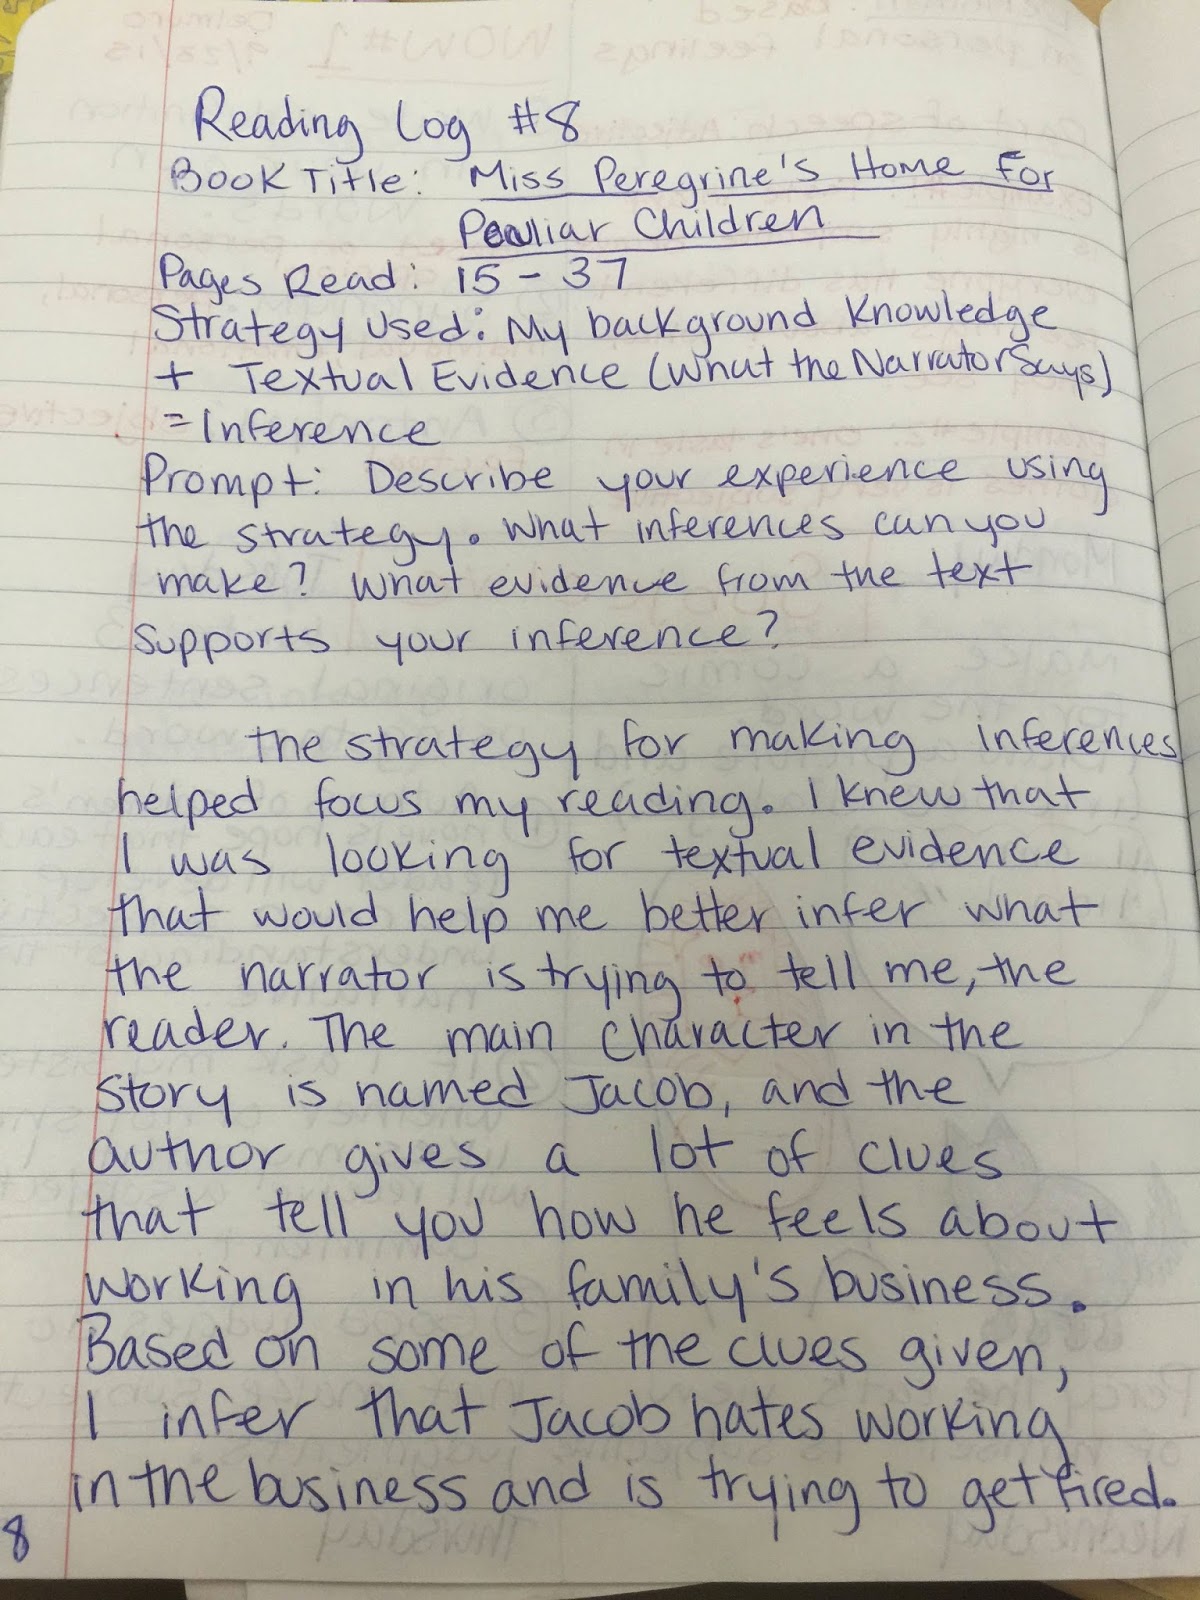 Reading Log #8
Book Title: Miss Peregrine's Home For
Peculiar Children
Pages Read: 15 - 37
Strategy Used: My background Knowledge
+ Textual Evidence (What the Narrator Says)
= Inference
Prompt: Describe your experience using
the strategy. What inferences can you
make? What evidence from the text
supports your inference?
The strategy for making inferences
helped focus my reading. I knew that
I was looking for textual evidence
that would help me better infer what
the narrator is trying to tell me, the
reader. The main character in the
story is named Jacob, and the
author gives a lot of clues
that tell you how he feels about
working in his family's business.
Based on some of the clues given,
I infer that Jacob hates working
in the business and is trying to get fired.
8